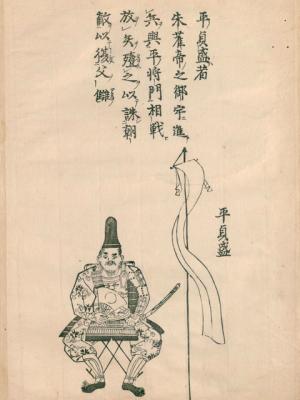 平貞盛者
朱雀帝之御宇進
兵與平将門相戦
放矢殪之以誅朝
敵以復父讎
平貞盛